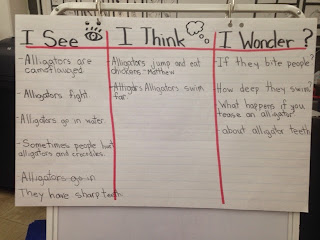 I See
I Think
I Wonder ?
-Alligators are
camouflauged.
-Alligators fight.
Alligators go in water.
-Sometimes people hurt
alligators and crocodiles.
-Alligators go in
They have sharp teeth.
Alligators jump and eat
chickens -Matthew
Alligators swim
far.
-If they bite people?
How deep they swim?
What happens if you
tease an alligator
about alligator teeth